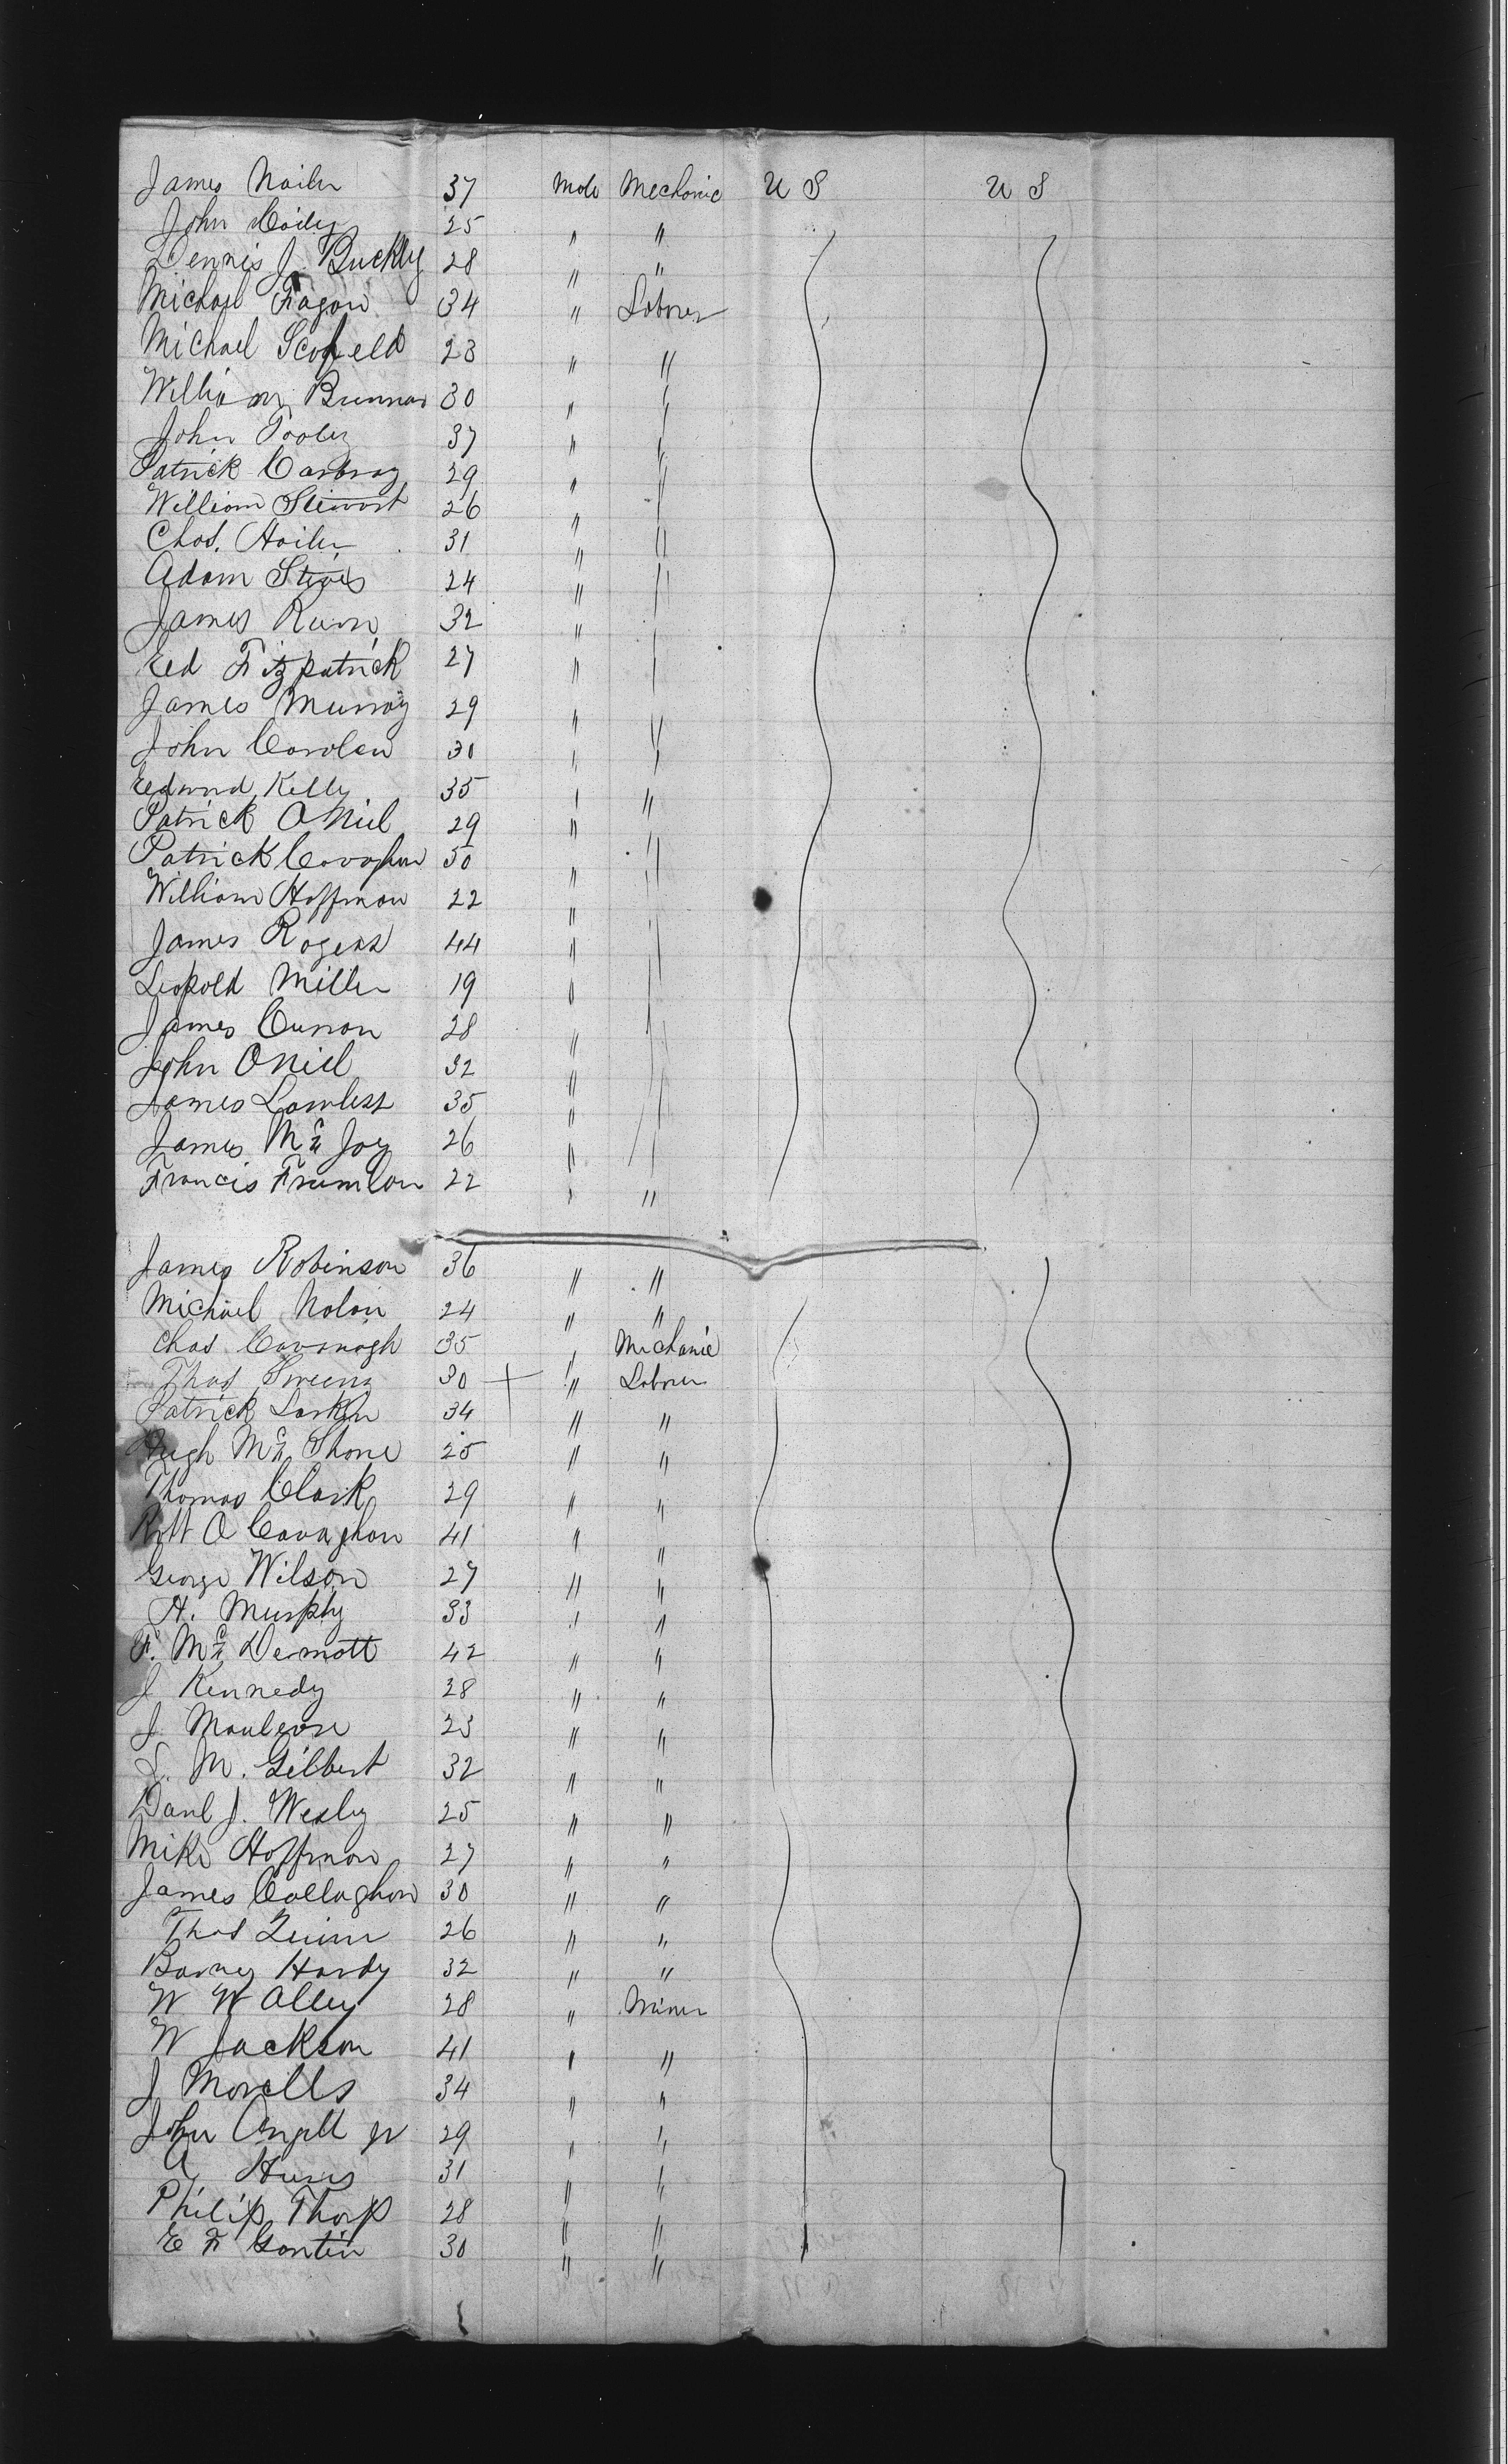 James Nailer 37 Male Mechanic U S U S
John Coiley 25 " "
Dennis J. Buckley 28 " "
Michael Fagan 34 " Laborer
Michael Scofield 23 " "
William Brennan 30 " "
John Tooley 37 " "
Patrick Carbray 29 " "
William Stewart 26 " "
Chas. Hailer 31 " "
Adam Stives 24 " "
James Runn 32 "
Ed Fitzpatrick 27 "
James Murray 29 " "
John Carolan 30 " "
Edward Kelly 35 " "
Patrick ONiel 29 "
Patrick Cavaghan 50 " "
William Hoffman 22 "
James Rogers 44 " "
Leopold Miller 19 "
James Curran 28 " "
John ONiel 32 " "
James Lawless 35 " "
James Mc Joy 26 " "
Francis 22 " "
James Robinson 36 " "
Michael Nolan 24 " "
Chas Cavanagh 35 " Mechanic
Thos Sweeny 30 + " Laborer
Patrick Larkin 34 " "
Hugh Mc Shane 25 " "
Thomas Clark 29 " "
Robt O Cavaghan 41 " "
George Wilson 27 " "
H. Murphy 33 " "
F. Mc Dermott 42 " "
J Kennedy 38 " "
J. 23 " "
S. M. Gilbert 32 " "
Danl J. Wesley 25 " "
Mike Hoffman 27 " "
James Callaghan 30 " "
Thos Quinn 26 " "
Barney Hardy 32 " "
W W Alley 28 " Miner
W Jackson 41 " "
J Morells 34 " "
John Angell Jr 29 " "
A 31 " "
Philip Thorp 28 " "
E F Gantin 30 " "